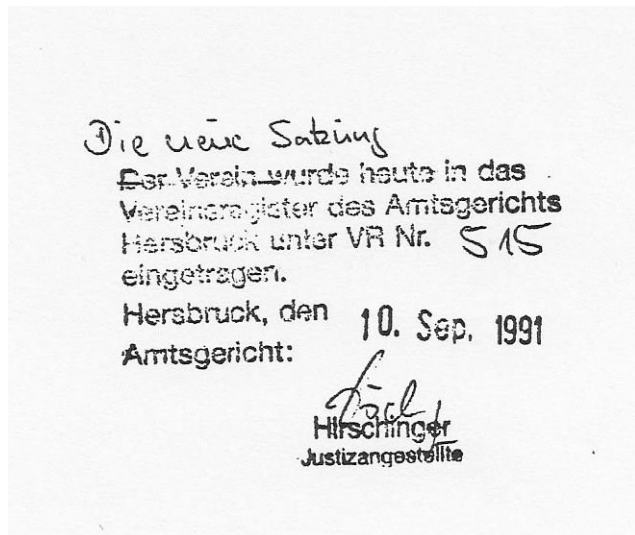 Die neue Satzung
Der Verein wurde heute in das
Vereinsregister des Amtsgerichts
Hersbruck unter VR Nr. 515
eingetragen.
Hersbruck, den 10. Sep. 1991
Amtsgericht:
Hirschinger
Justizangestellte